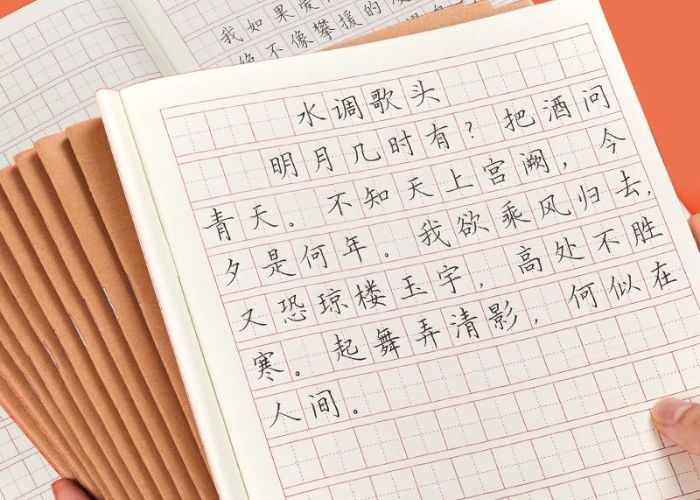 我如果爱
绝不像攀援的
水调歌头
明月几时有？把酒问
青天。不知天上宫阙，今
夕是何年。我欲乘风归去，
又恐琼楼玉宇，高处不胜
寒。起舞弄清影，何似在
人间。